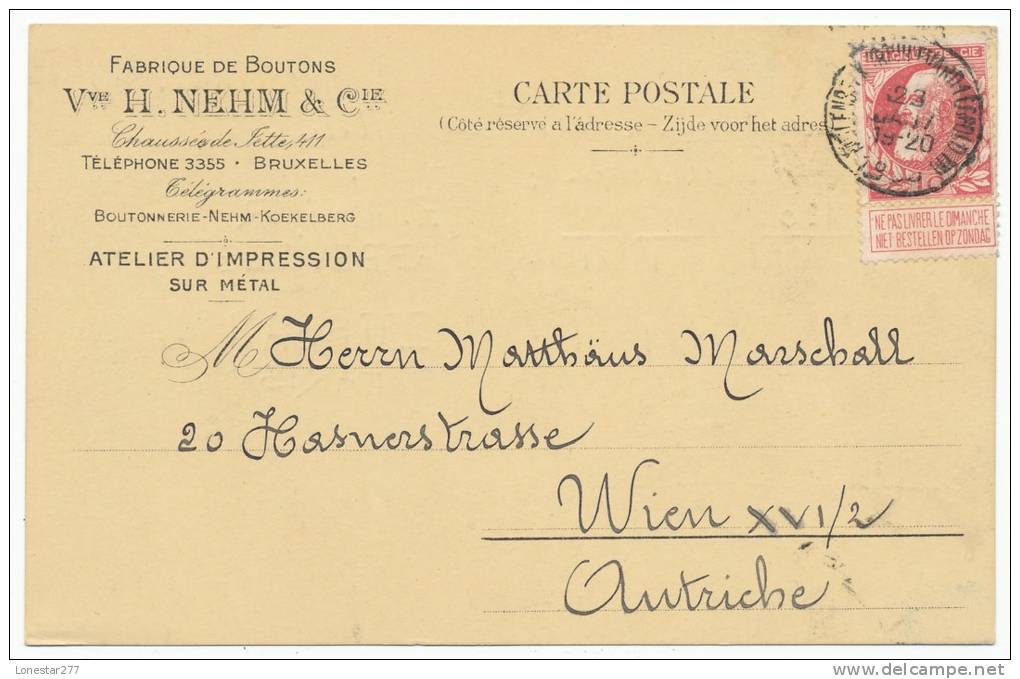 FABRIQUE DE BOUTONS
VVE H. NEHM & CIE
Chaussée de Jette, 411
TÉLÉPHONE 3355 • BRUXELLES
Télégrammes:
BOUTONNERIE-NEHM-KOEKELBERG
ATELIER D'IMPRESSION
SUR MÉTAL
CARTE POSTALE
(Côté réservé a l'adresse – Zijde voor het adres
23
19-20
NE PAS LIVRER LE DIMANCHE
NIET BESTELLEN OP ZONDAG
M Herrn Matthäus Marschall
20 Hasnerstrasse
Wien XVI/2
Autriche
Lonestar277
www.delcampe.net